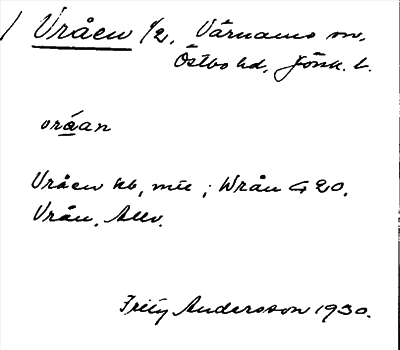 / Vråen 1/2, Värnamo sn,
Östbo hd, Jönk. l.
oråan
Vråen kb, mtl ; Wrån G 20.
Vrån, Allv.
Fritz Andersson 1930.